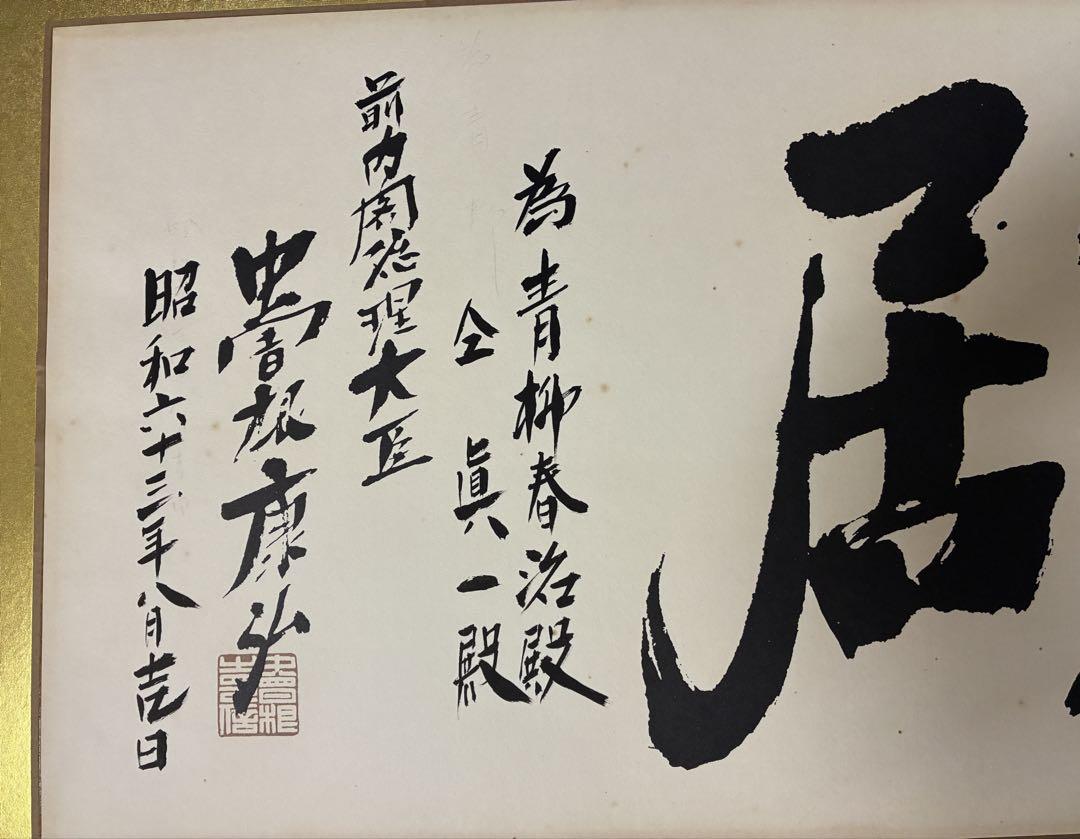 居
為青柳春治殿
仝眞一殿
前内閣総理大臣
中曽根康弘
昭和六十三年八月吉日